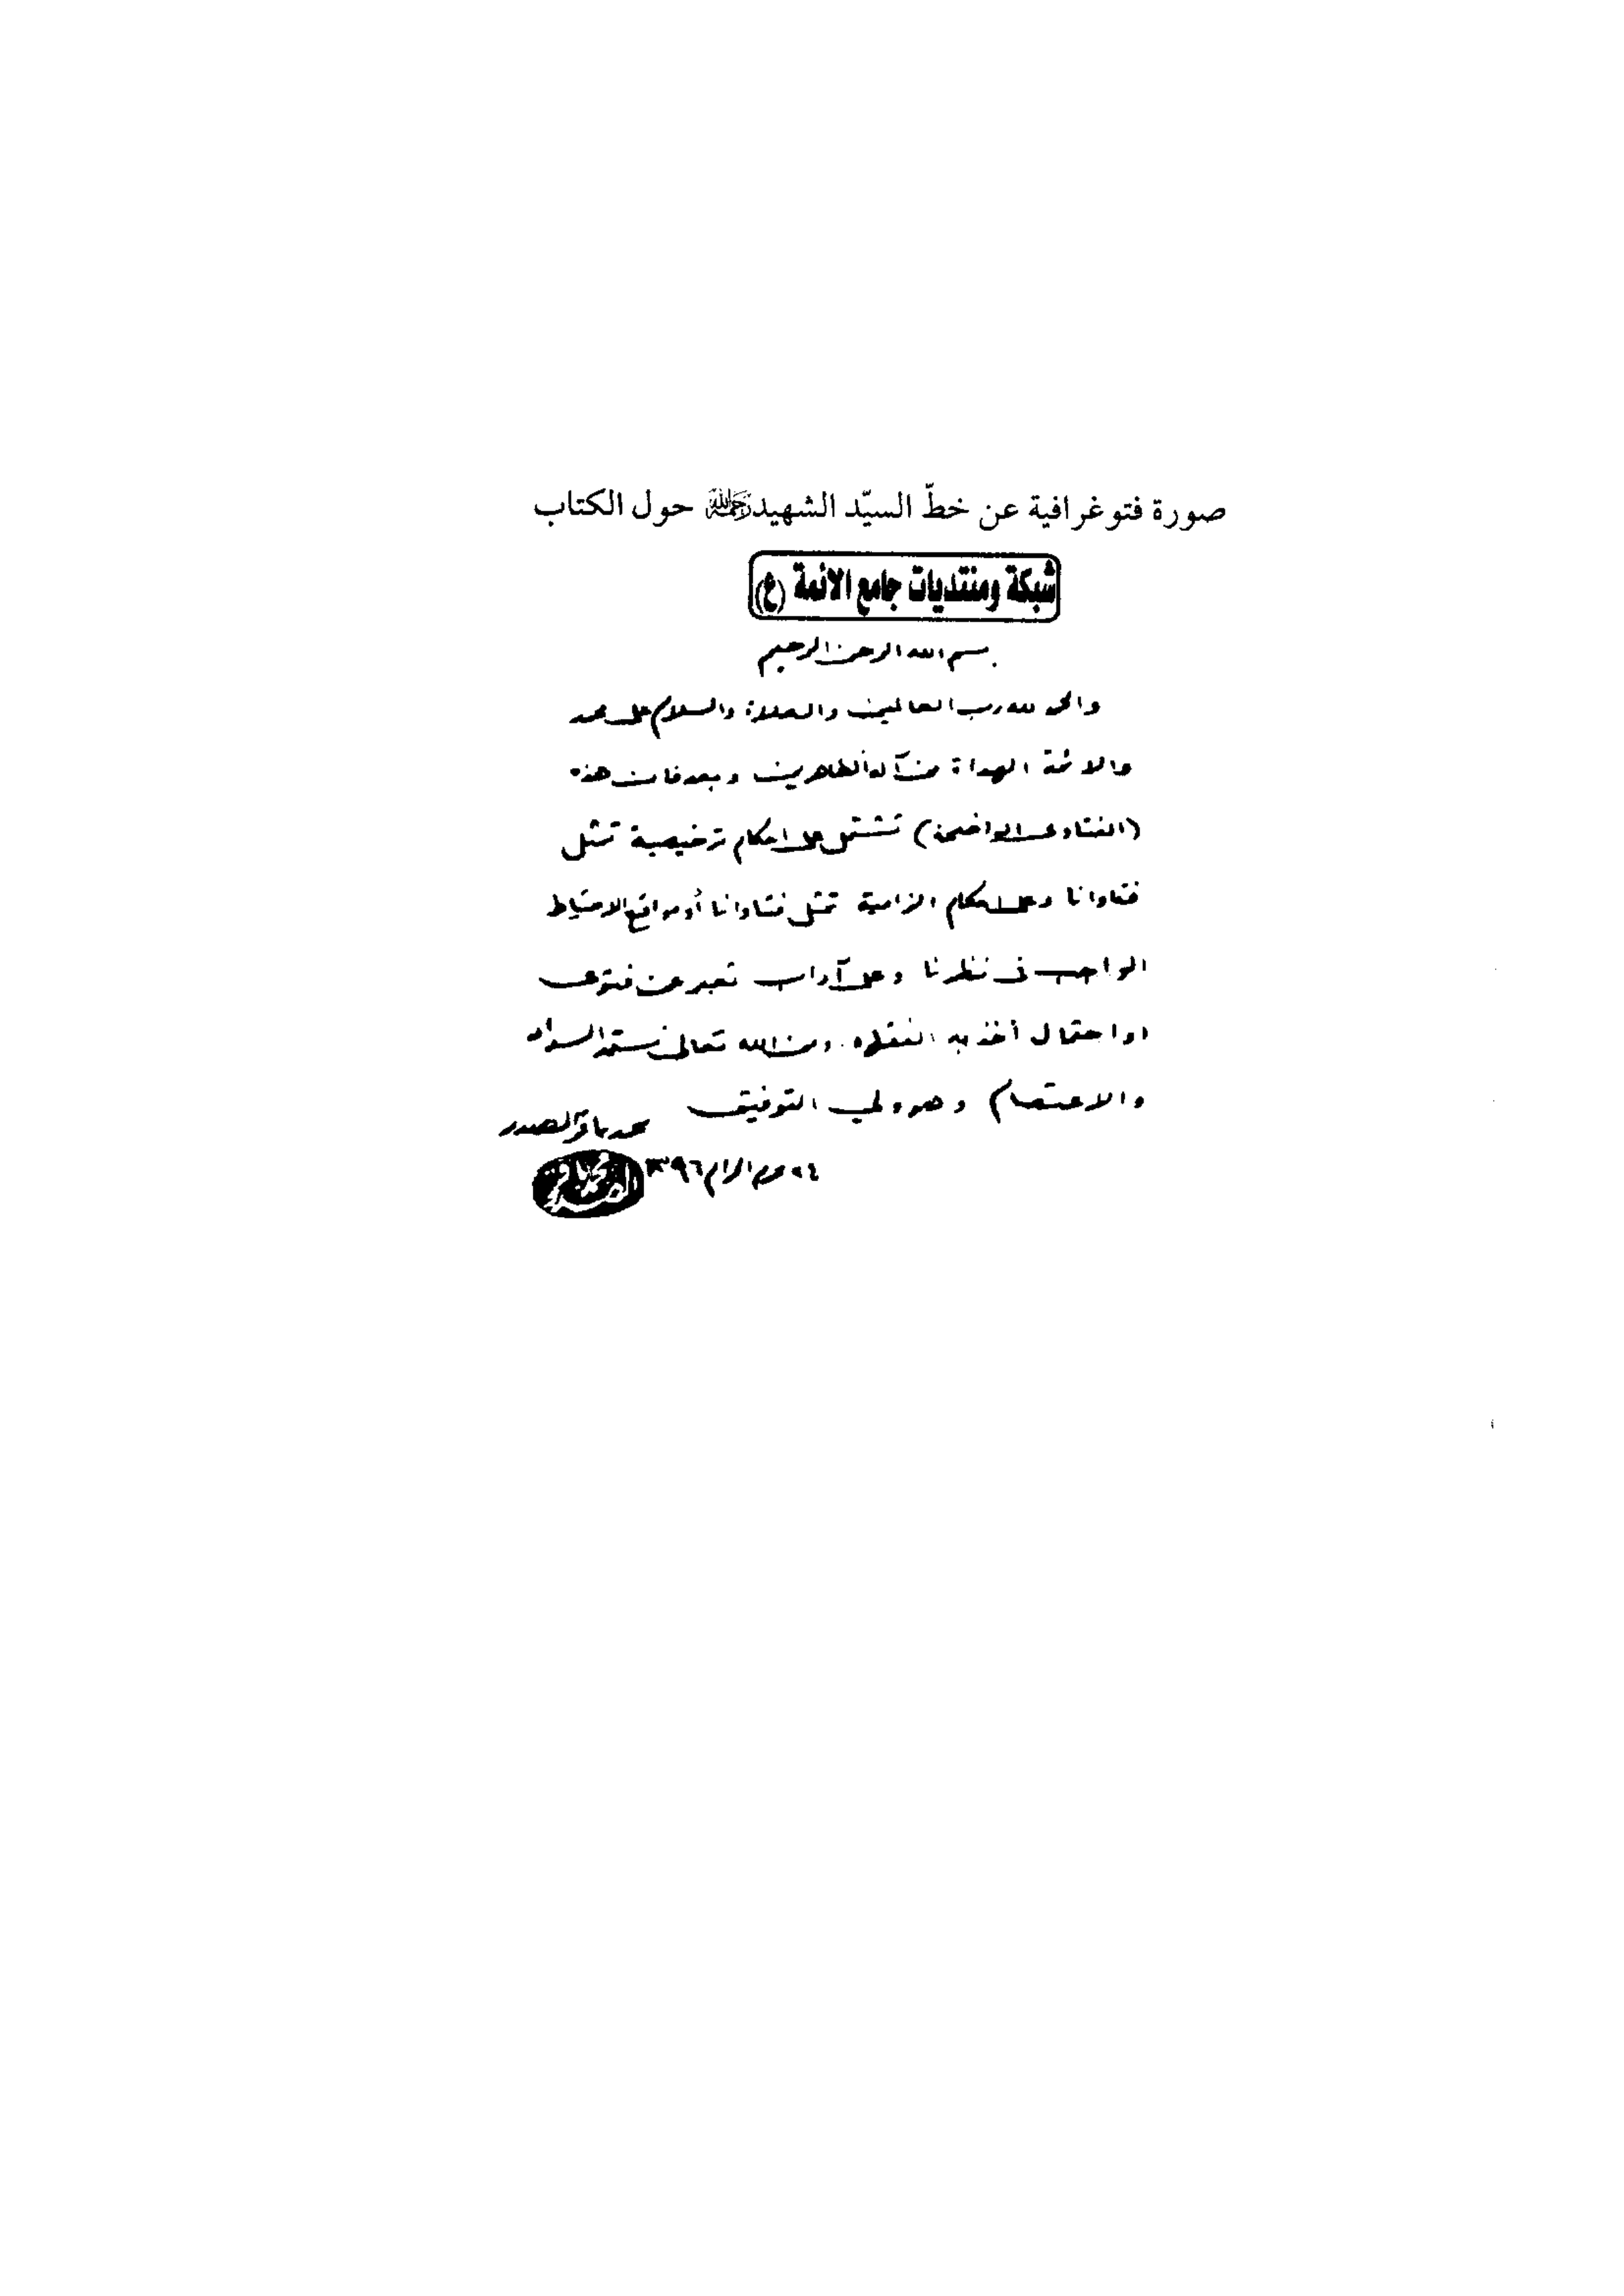 صورة فتوغرافية عن خطّ السيّد الشهيد رحمه الله حول الكتاب
شبكة ومنتديات جامع الائمة (ع)
بسم الله الرحمن الرحيم
والحمد لله رب العالمين والصلاة والسلام على محمد
والائمة الهداة من آله الطاهرين وبعد فان هذه
(الفتاوى الواضحة) تشتمل على احكام ترخيصية تمثل
فتاوانا وعلى احكام الزامية تمثل فتاوانا أو مواقع الاحتياط
الواجب في نظرنا وعلى آداب تعبر عن فتوى
او احتمال أخذ به الفقهاء ومن الله تعالى نستمد السداد
والاعتصام وهو ولي التوفيق
محمد باقر الصدر
محرم الحرام ١٣٩٦